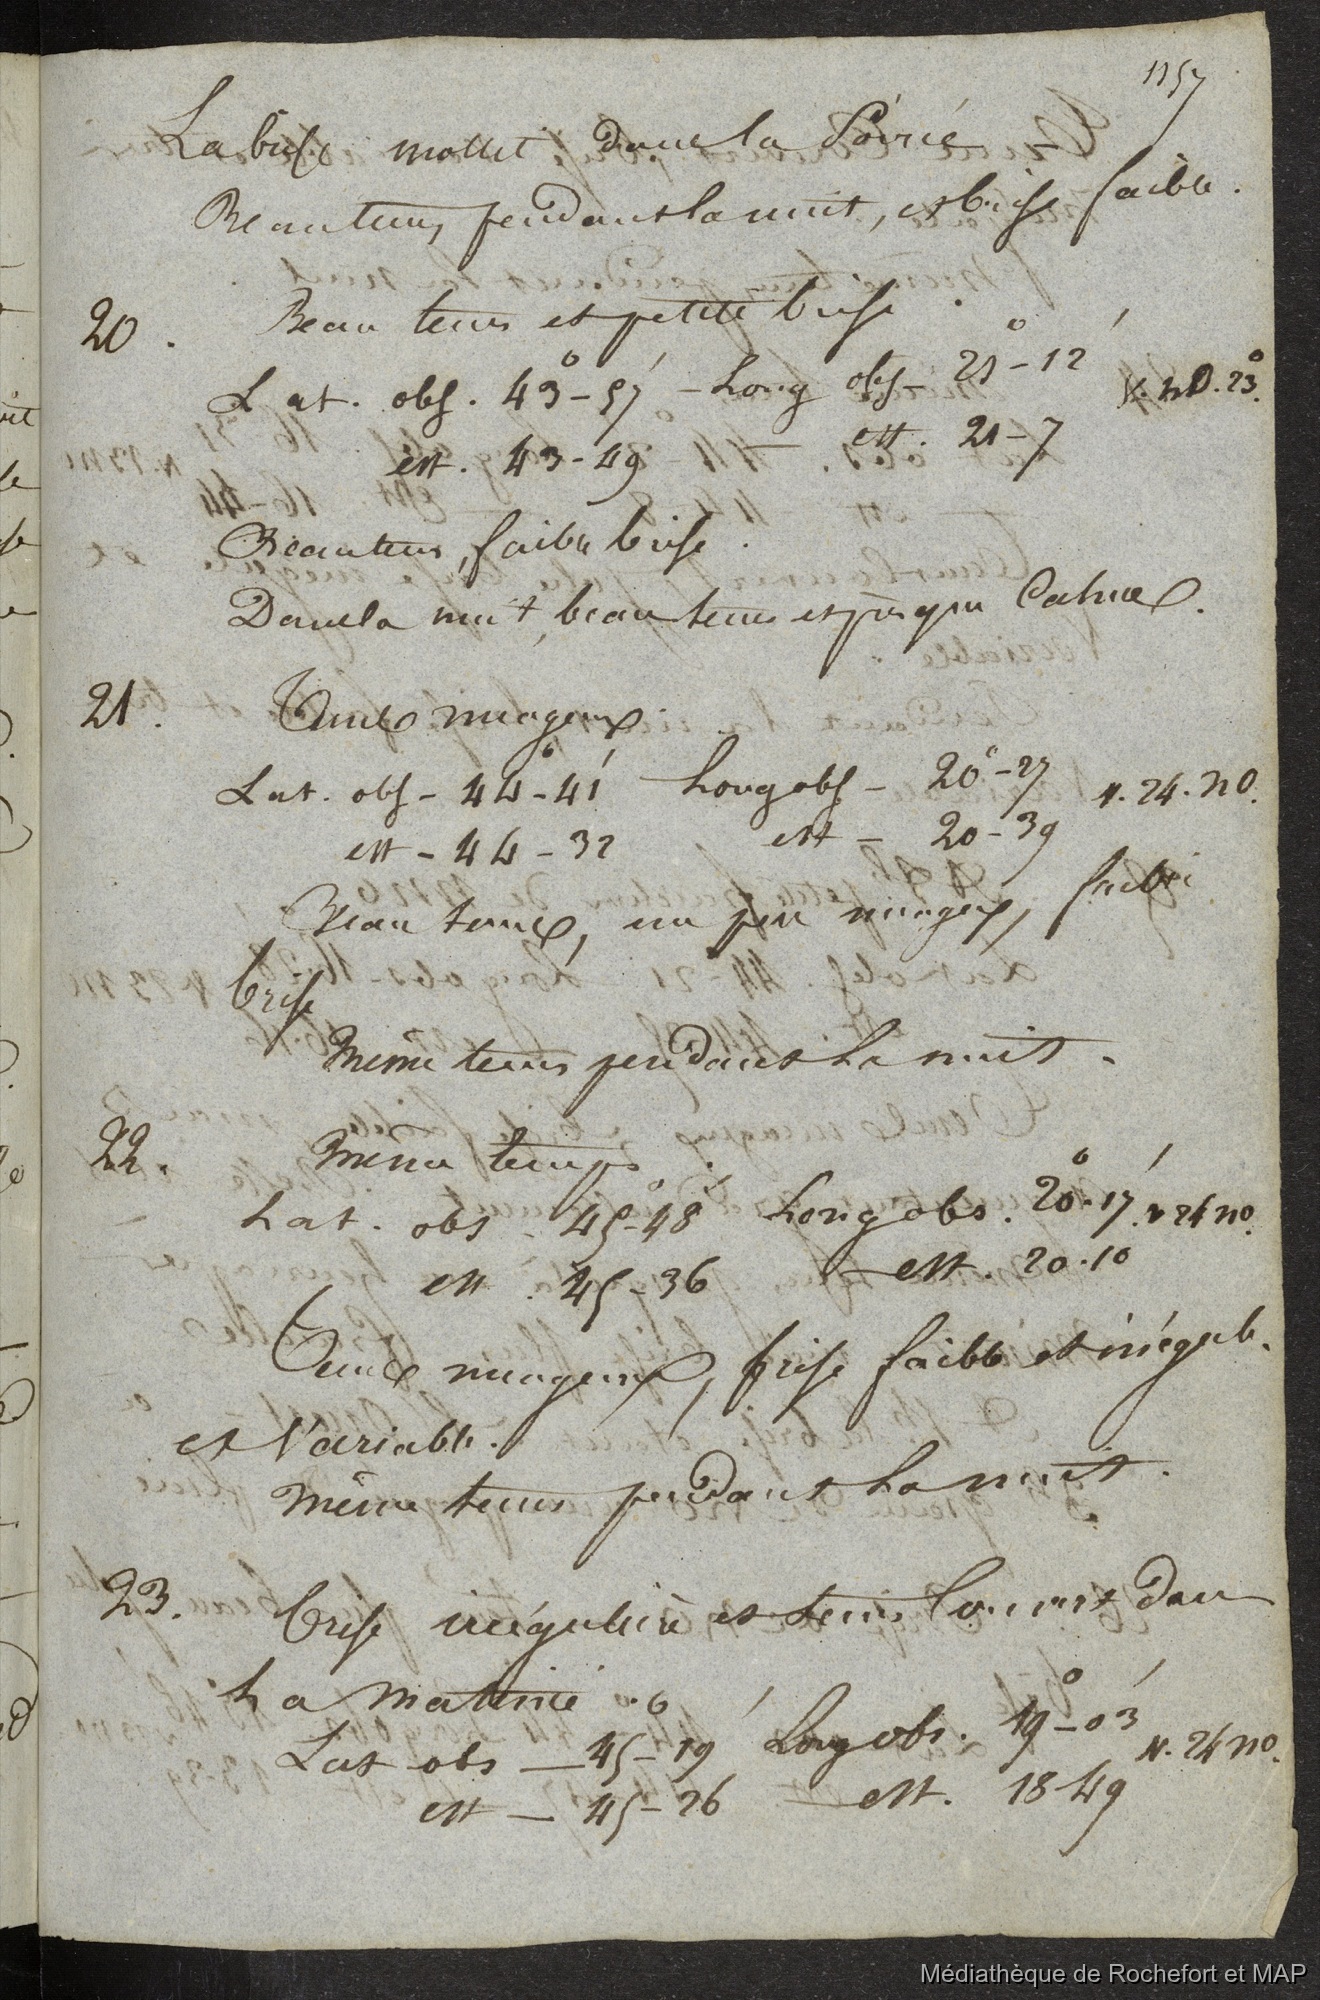 1157
La brise mollit dans la soirée
Beau tems pendant la nuit, et brise faible.
20. Beau tems et petite brise.
Lat. obs. 43°-57' - Long obs - 21°-12' V. nO. 23°.
est. 43-49 — est. 21-7
Beau tems, faible brise.
Dans la nuit, beau tems et presque Calme.
21. Tems nuageux.
Lat. obs - 44°-41' Long obs - 20°-27 v. 24. nO.
est - 44-32 est - 20-39
Beau tems, un peu nuageux, faible
brise
Même tems pendant la nuit.
22. Même temps.
Lat. obs - 45°-48' Long obs. 20°-17'. v 24 no.
est. 45-36 — est. 20.10
Tems nuageux, brise faible et inégale.
et Variable.
Même tems pendant la nuit.
23. brise irrégulière et tems Couvert dans
La matinée.
Lat obs — 45°-19' Long obs. 19°-03' v. 24 no.
est — 45-26 — est. 18-49
Médiathèque de Rochefort et MAP